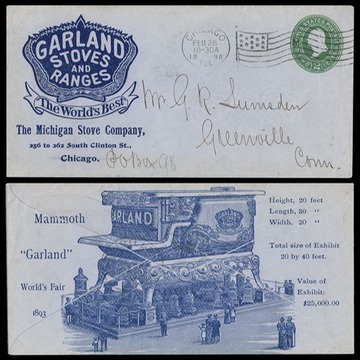 GARLAND
STOVES
AND
RANGES
The World's Best
The Michigan Stove Company,
236 to 262 South Clinton St.,
Chicago.
CHICAGO
FEB 26
10-30A
18 98
ILL.
Mr. G. R. Lumsden
Greenville
Conn.
Mammoth
"Garland"
World's Fair
1893
GARLAND
Height, 20 feet
Length, 30 "
Width, 20 "
Total size of Exhibit
20 by 40 feet.
Value of
Exhibit;
$25,000.00